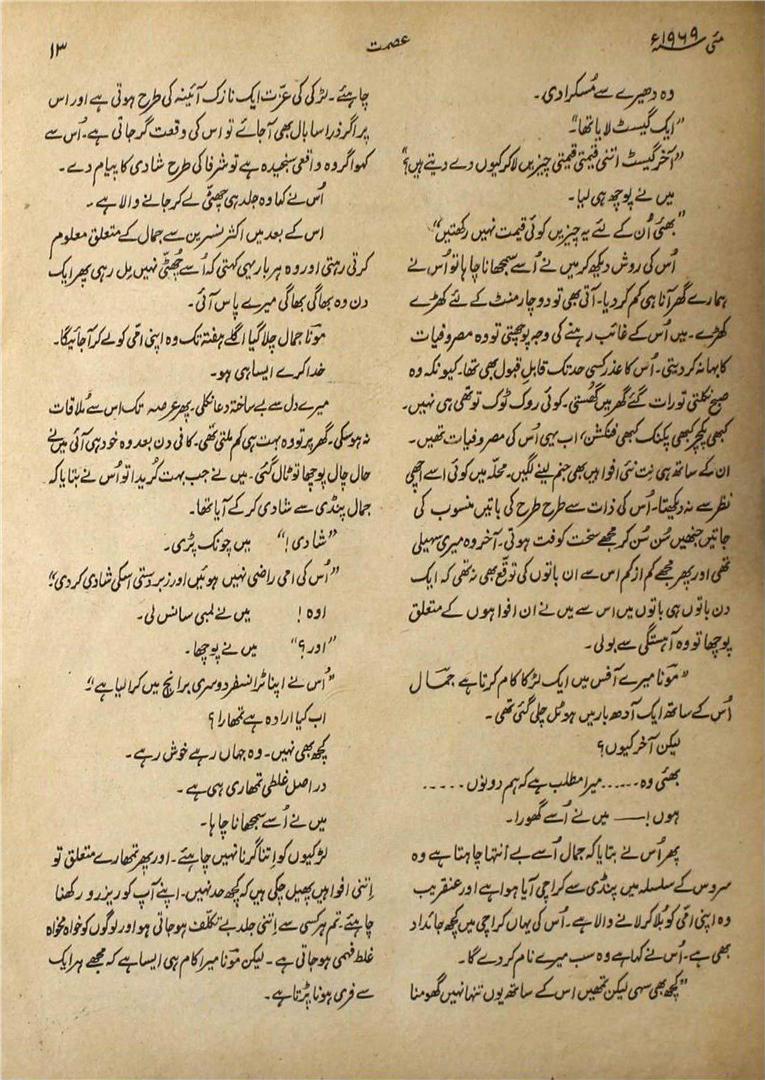 مئی ۱۹۶۹ء
عصمت
۱۳
وہ دھیرے سے مُسکرا دی۔
”ایک گیسٹ لایا تھا“۔
”آخر گیسٹ اتنی قیمتی قیمتی چیزیں لاکر کیوں دے دیتے ہیں؟“
میں نے پوچھ ہی لیا۔
”بھئی اُن کے لئے یہ چیزیں کوئی قیمت نہیں رکھتیں“
اُس کی روش دیکھ کر میں نے اُسے سمجھانا چاہا تو اُس نے
ہمارے گھر آنا ہی کم کردیا۔ آتی بھی تو دو چار منٹ کے لئے کھڑے
کھڑے۔ میں اُس کے غائب رہنے کی وجہ پوچھتی تو وہ مصروفیات
کا بہانہ کردیتی۔ اُس کا عذر کسی حد تک قابلِ قبول بھی تھا۔ کیونکہ وہ
صبح نکلتی تو رات گئے گھر میں گھُستی۔ کوئی روک ٹوک تو تھی ہی نہیں۔
کبھی پکچر کبھی پکنک کبھی فنکشن، اب یہی اُس کی مصروفیات تھیں۔
ان کے ساتھ ہی نِت نئی افواہیں بھی جنم لینے لگیں۔ محلّہ میں کوئی اسے اچھی
نظر سے نہ دیکھتا۔ اُس کی ذات سے طرح طرح کی باتیں منسوب کی
جاتیں جنھیں سُن سُن کر مجھے سخت کوفت ہوتی۔ آخر وہ میری سہیلی
تھی اور پھر مجھے کم از کم اس سے ان باتوں کی توقع بھی نہ تھی کہ ایک
دن باتوں ہی باتوں میں اس سے میں نے ان افواہوں کے متعلق
پوچھا تو وہ آہستگی سے بولی۔
”مونا میرے آفس میں ایک لڑکا کام کرتا ہے جمال
اُس کے ساتھ ایک آدھ بار میں ہوٹل چلی گئی تھی۔
لیکن آخر کیوں؟
بھئی وہ ...... میرا مطلب ہے کہ ہم دونوں .....
ہوں!— میں نے اُسے گھورا۔
پھر اُس نے بتایا کہ جمال اُسے بے انتہا چاہتا ہے وہ
سروس کے سلسلہ میں پنڈی سے کراچی آیا ہوا ہے اور عنقریب
وہ اپنی امّی کو بُلا کر لانے والا ہے۔ اُس کی یہاں کراچی میں کچھ جائداد
بھی ہے۔ اُس نے کہا ہے وہ سب میرے نام کردے گا۔
”کچھ بھی سہی لیکن تمھیں اس کے ساتھ یوں تنہا نہیں گھومنا
چاہئے۔ لڑکی کی عزّت ایک نازک آئینہ کی طرح ہوتی ہے اور اس
پر اگر ذرا سا بال بھی آجائے تو اس کی وقعت گر جاتی ہے۔ اُس سے
کہو اگر وہ واقعی سنجیدہ ہے تو شرفا کی طرح شادی کا پیام دے۔
اُس نے کہا وہ جلد ہی چھٹی لے کر جانے والا ہے۔
اس کے بعد میں اکثر نسرین سے جمال کے متعلق معلوم
کرتی رہتی اور وہ ہر بار یہی کہتی کہ اُسے چھُٹی نہیں مِل رہی پھر ایک
دن وہ بھاگی بھاگی میرے پاس آئی۔
مونا جمال چلا گیا اگلے ہفتہ تک وہ اپنی امّی کو لے کر آجائیگا۔
خدا کرے ایسا ہی ہو۔
میرے دل سے بے ساختہ دعا نکلی۔ پھر عرصہ تک اس سے مُلاقات
نہ ہوسکی۔ گھر پر تو وہ بہت ہی کم ملتی تھی۔ کافی دن بعد وہ خود ہی آئی میں نے
حال چال پوچھا تو ٹال گئی۔ میں نے جب بہت کُریدا تو اُس نے بتایا کہ
جمال پنڈی سے شادی کر کے آیا تھا۔
”شادی!“ میں چونک پڑی۔
”اُس کی امی راضی نہیں ہوئیں اور زبردستی اسکی شادی کردی“
اوہ! میں نے لمبی سانس لی۔
”اور؟“ میں نے پوچھا۔
”اُس نے اپنا ٹرانسفر دوسری برانچ میں کرا لیا ہے“
اب کیا ارادہ ہے تمھارا؟
کچھ بھی نہیں۔ وہ جہاں رہے خوش رہے۔
در اصل غلطی تمھاری ہی ہے۔
میں نے اُسے سمجھانا چاہا۔
لڑکیوں کو اِتنا گرنا نہیں چاہئے۔ اور پھر تمھارے متعلق تو
اِتنی افواہیں پھیل چکی ہیں کہ کچھ حد نہیں۔ اپنے آپ کو ریزرو رکھنا
چاہئے۔ تم ہر کسی سے اِتنی جلد بے تکلّف ہوجاتی ہو اور لوگوں کو خواہ مخواہ
غلط فہمی ہوجاتی ہے۔ لیکن مونا میرا کام ہی ایسا ہے کہ مجھے ہر ایک
سے فری ہونا پڑتا ہے۔